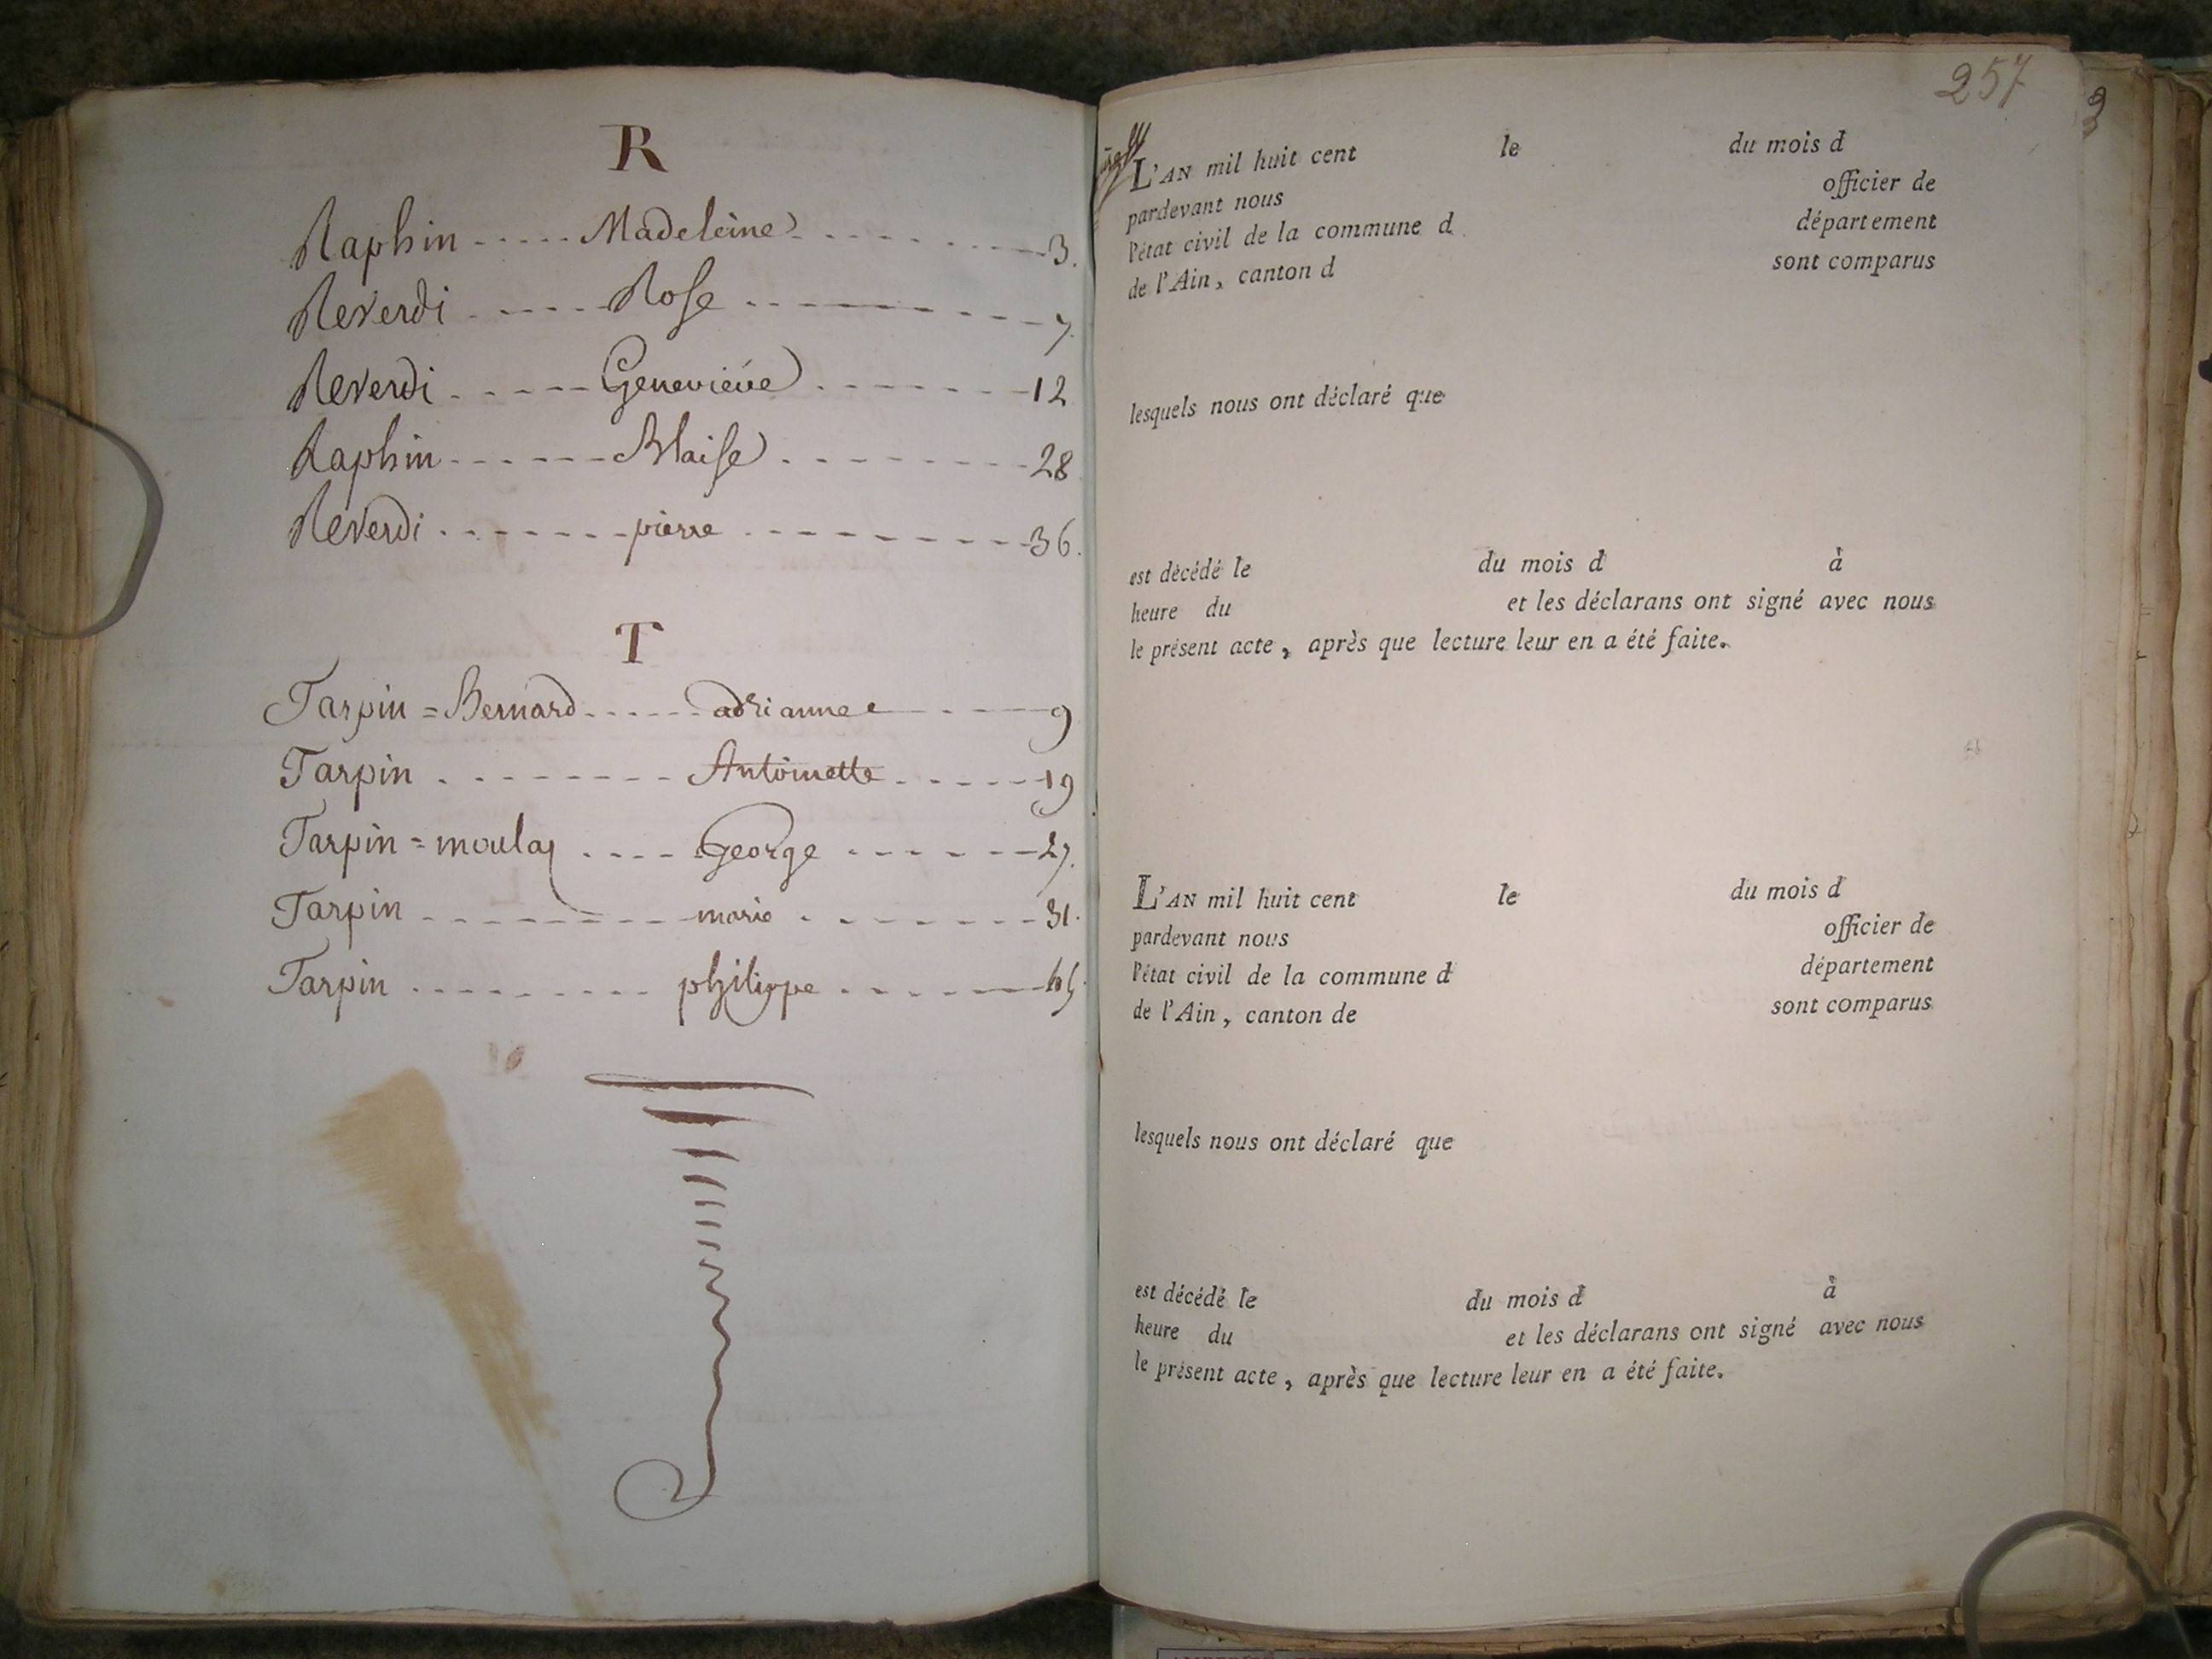 R
Raphin ----- Madeleine ------- 3.
Reverdi ----- Rose ---------- 7.
Reverdi ----- Geneviéve ------- 12
Raphin ------ Blaise -------- 28
Reverdi ------- pierre --------- 36.
T
Tarpin = Bernard ------ adrianne ----- 9
Tarpin -------- Antoinette ----- 19
Tarpin = moulas ---- George ------ 27.
Tarpin -------- marie ------- 31.
Tarpin --------- philippe ------
257
L'AN mil huit cent le du mois d
pardevant nous officier de
l'état civil de la commune d département
de l'Ain, canton d sont comparus
lesquels nous ont déclaré que
est décédé le du mois d à
heure du et les déclarans ont signé avec nous
le présent acte, après que lecture leur en a été faite.
L'AN mil huit cent le du mois d
pardevant nous officier de
l'état civil de la commune d département
de l'Ain, canton de sont comparus
lesquels nous ont déclaré que
est décédé le du mois d à
heure du et les déclarans ont signé avec nous
le présent acte, après que lecture leur en a été faite.